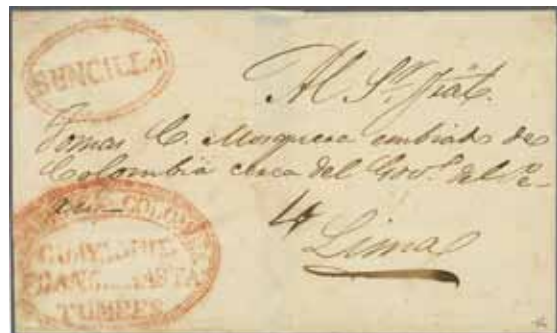 SENCILLA
Al Sr. Gral.
Tomas C. Mosquera embiado de
Colombia cerca del Gov.º del Pe-
ru
4
Lima
COLOM
FRANC HASTA
TUMBES